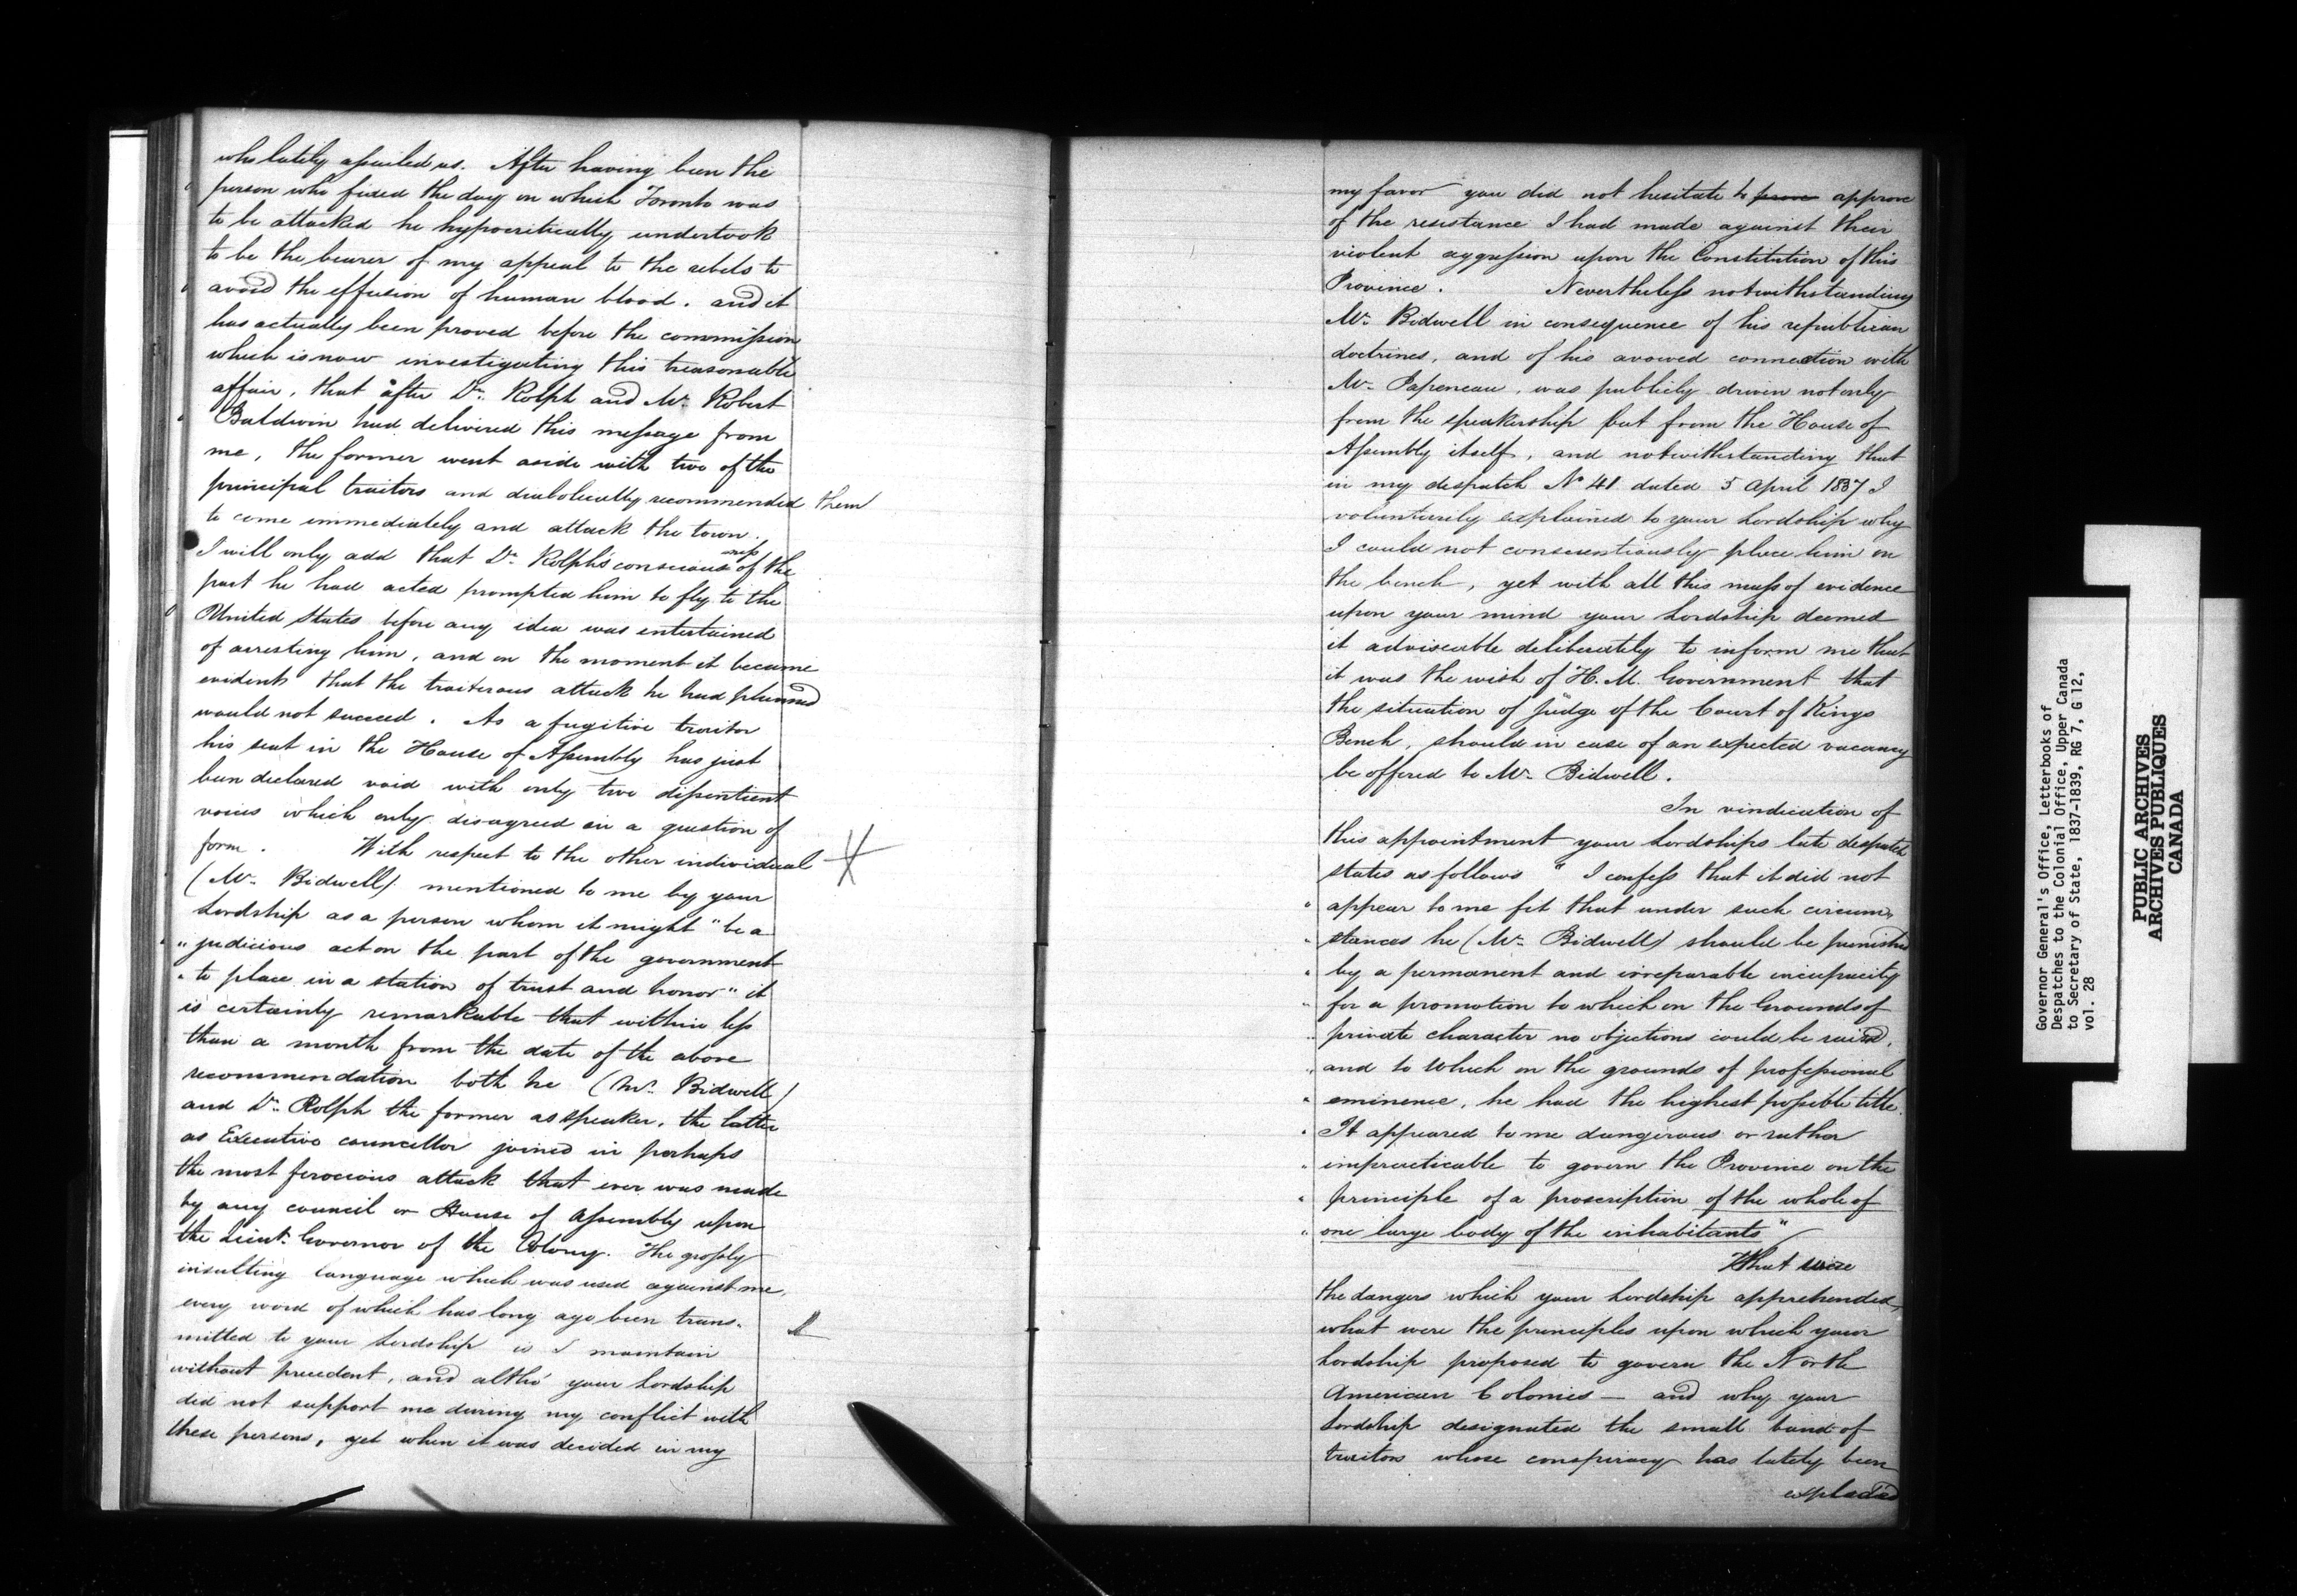 who lately assailed us. After having been the
person who fixed the day on which Toronto was
to be attacked he hypocritically undertook
to be the bearer of my appeal to the rebels to
avoid the effusion of human blood. and it
has actually been proved before the commission
which is now investigating this treasonable
affair, that after Dr. Rolph and Mr. Robert
Baldwin had delivered this message from
me, the former went aside with two of the
principal traitors and diabolically recommended them
to come immediately and attack the town.
I will only add that Dr. Rolph's consciousness of the
part he had acted prompted him to fly to the
United States before any idea was entertained
of arresting him, and on the moment it became
evident that the traiterous attack he had planned
would not succeed. As a fugitive traitor
his seat in the House of Assembly has just
been declared void with only two dissentient
voices which only disagreed on a question of
form. With respect to the other individual
(Mr. Bidwell) mentioned to me by your
Lordship as a person whom it might "be a
" judicious act on the part of the government
" to place in a station of trust and honor" it
is certainly remarkable that within less
than a month from the date of the above
recommendation both he (Mr. Bidwell)
and Dr. Rolph the former as speaker, the latter
as Executive councellor joined in perhaps
the most ferocious attack that ever was made
by any council or House of Assembly upon
the Lieut. Governor of the Colony. The grossly
insulting language which was used against me,
every word of which has long ago been trans-
mitted to your Lordship is I maintain
without precedent, and altho' your Lordship
did not support me during my conflict with
these persons, yet when it was decided in my
my favor you did not hesitate to prove approve
of the resistance I had made against their
violent aggression upon the Constitution of this
Province. Nevertheless notwithstanding
Mr. Bidwell in consequence of his republican
doctrines, and of his avowed connection with
Mr. Papeneau, was publicly driven not only
from the speakership but from the House of
Assembly itself, and notwithstanding that
in my despatch No 41 dated 5 April 1837 I
voluntarily explained to your Lordship why
I could not conscientiously place him on
the bench, yet with all this mass of evidence
upon your mind your Lordship deemed
it adviseable deliberately to inform me that
it was the wish of H. M. Government that
the situation of judge of the Court of Kings
Bench, should in case of an expected vacancy
be offered to Mr. Bidwell.
In vindication of
this appointment your Lordships late despatch
states as follows " I confess that it did not
" appear to me fit that under such circum-
" stances he (Mr. Bidwell) should be punished
" by a permanent and irreparable incapacity
" for a promotion to which on the Grounds of
" private character no objections could be raised,
" and to which on the grounds of professional
" eminence, he had the highest possible title.
" It appeared to me dangerous or rather
" impracticable to govern the Province on the
" principle of a proscription of the whole of
" one large body of the inhabitants"
What were
the dangers which your Lordship apprehended,
what were the principles upon which your
Lordship proposed to govern the North
American Colonies — and why your
Lordship designated the small band of
traitors whose conspiracy has lately been
exploded
Governor General's Office, Letterbooks of
Despatches to the Colonial Office, Upper Canada
to Secretary of State, 1837-1839, RG 7, G 12,
vol. 28
PUBLIC ARCHIVES
ARCHIVES PUBLIQUES
CANADA